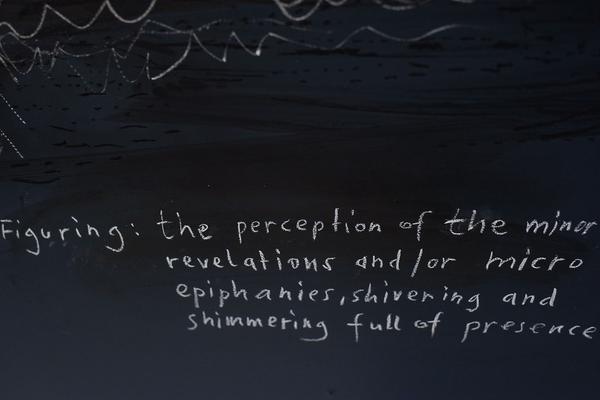 Figuring: the perception of the minor
revelations and/or micro
epiphanies, shivering and
shimmering full of presence